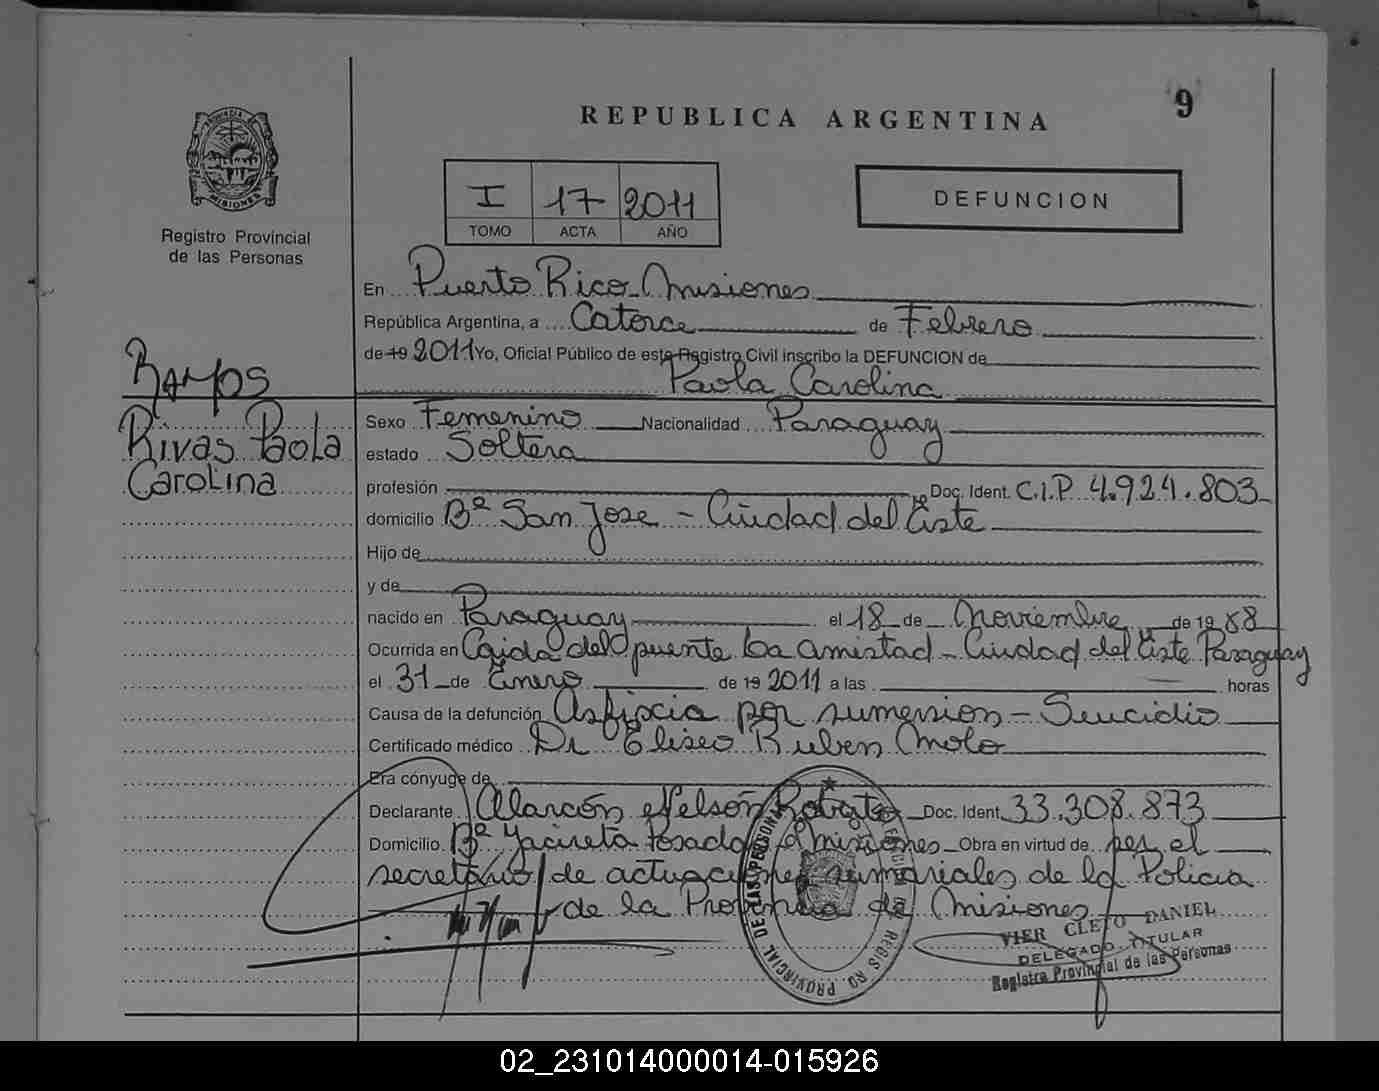 9
REPUBLICA ARGENTINA
PROVINCIA DE
MISIONES
Registro Provincial
de las Personas
I 17 2011
TOMO ACTA AÑO
DEFUNCION
En Puerto Rico Misiones
República Argentina, a Catorce de Febrero
de 19 2011 Yo, Oficial Público de este Registro Civil inscribo la DEFUNCION de
Paola Carolina
RAMOS
Rivas Paola
Carolina
Sexo Femenino Nacionalidad Paraguay
estado Soltera
profesión Doc. Ident. C.I.P 4.924.803
domicilio Bº San Jose - Ciudad del Este
Hijo de
y de
nacido en Paraguay el 18 de Noviembre de 19 88
Ocurrida en Caida del puente La amistad - Ciudad del Este Paraguay
el 31 de Enero de 19 2011 a las horas
Causa de la defunción Asfixia por sumersion - Suicidio
Certificado médico Dr Eliseo Ruben Molo
Era cónyuge de
Declarante Alarcón Nelson Roberto Doc. Ident. 33.308.873
Domicilio Bº Yacireta Posadas Misiones Obra en virtud de ser el
secretario de actuaciones sumariales de la Policia
de la Provincia de Misiones
VIER CLETO DANIEL
DELEGADO TITULAR
Registro Provincial de las Personas
REGISTRO PROVINCIAL DE LAS PERSONAS
02_231014000014-015926